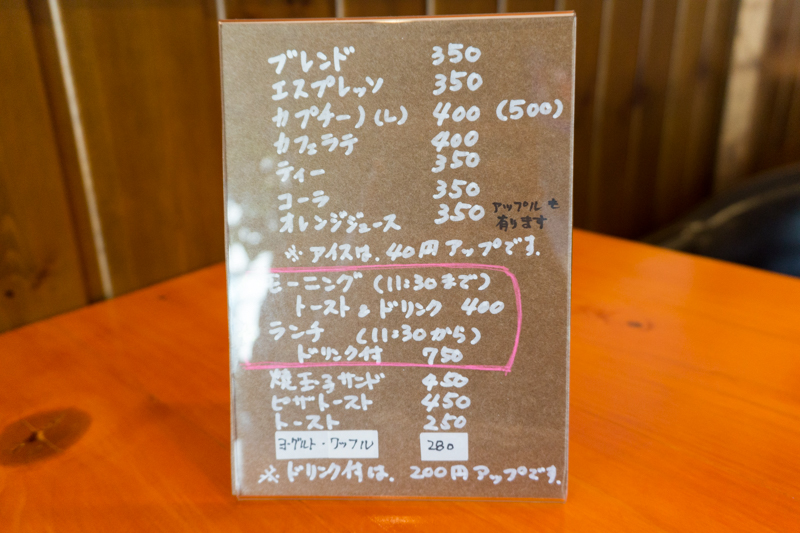 ブレンド 350
エスプレッソ 350
カプチーノ(L) 400 (500)
カフェラテ 400
ティー 350
コーラ 350
オレンジジュース 350 アップルも
有ります
※ アイスは、40円アップです.
モーニング (11:30まで)
トースト&ドリンク 400
ランチ (11:30から)
ドリンク付 750
焼玉子サンド 450
ピザトースト 450
トースト 250
ヨーグルト・ワッフル 280
※ ドリンク付は、200円アップです.